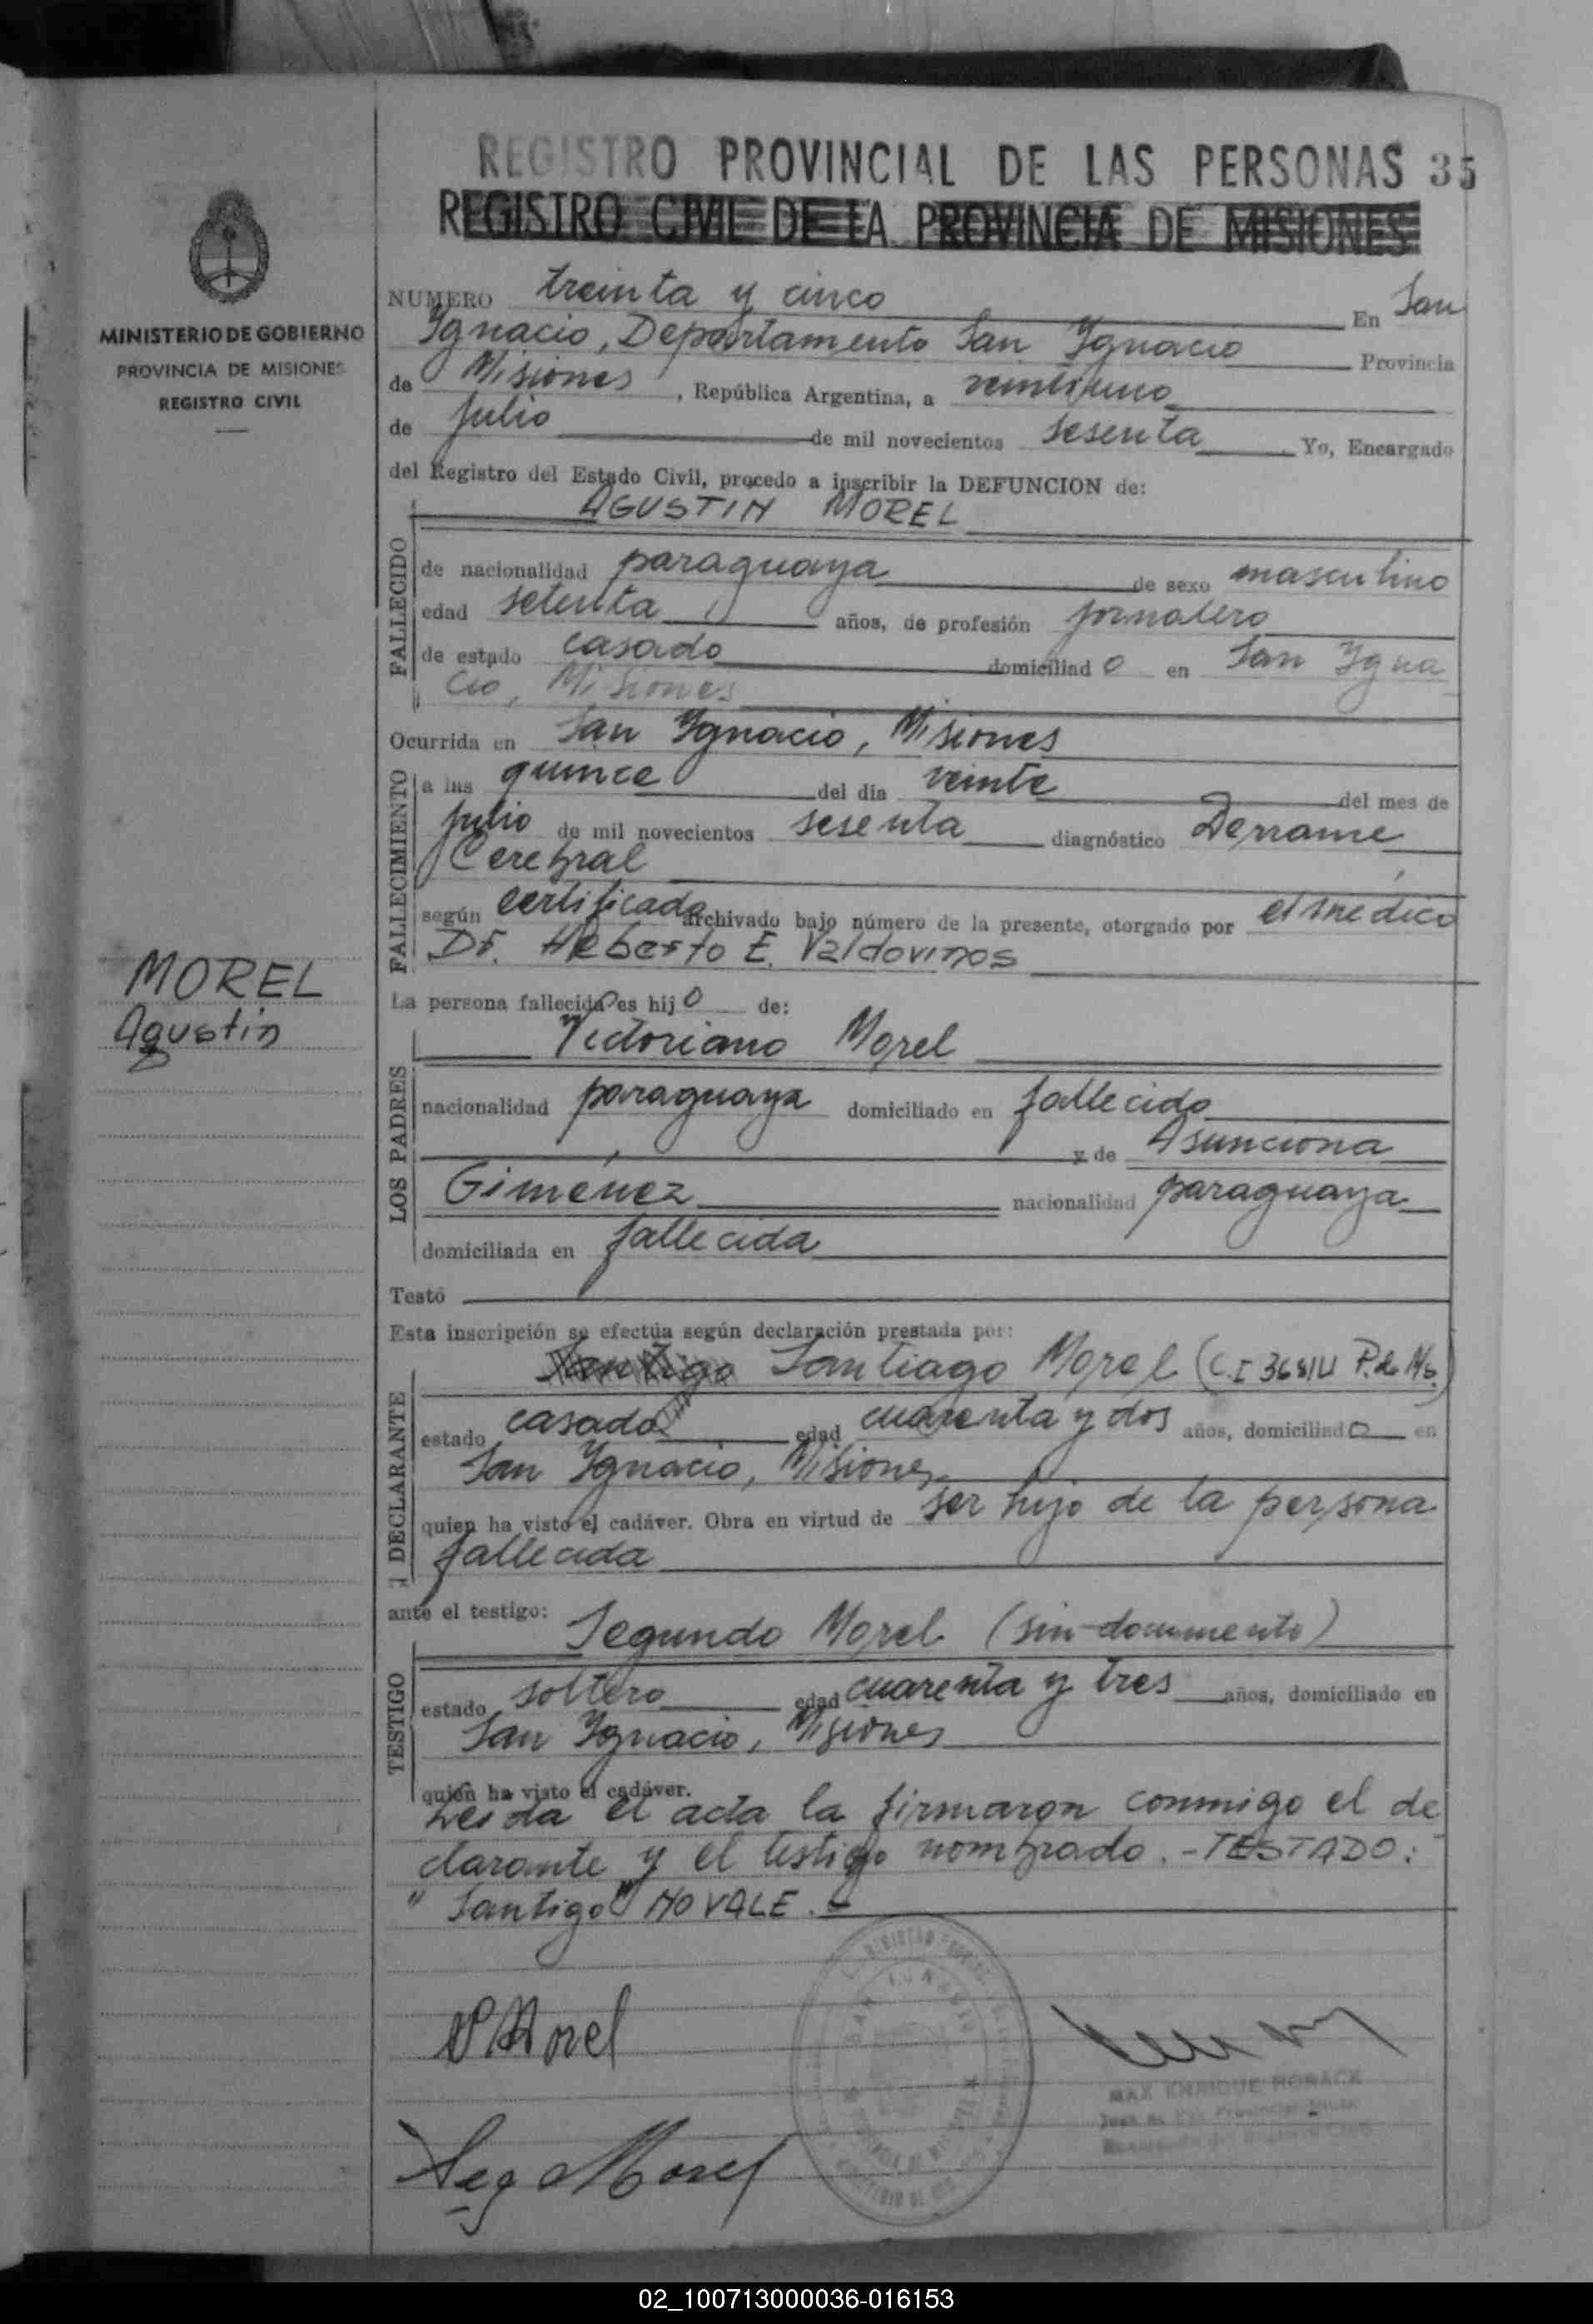 REGISTRO PROVINCIAL DE LAS PERSONAS 35
REGISTRO CIVIL DE LA PROVINCIA DE MISIONES
MINISTERIO DE GOBIERNO
PROVINCIA DE MISIONES
REGISTRO CIVIL
NUMERO treinta y cinco En San
Ygnacio, Departamento San Ygnacio Provincia
de Misiones, República Argentina, a veintiuno
de julio de mil novecientos sesenta Yo, Encargado
del Registro del Estado Civil, procedo a inscribir la DEFUNCION de:
AGUSTIN MOREL
FALLECIDO
de nacionalidad paraguaya de sexo masculino
edad setenta años, de profesión jornalero
de estado casado domiciliado en San Ygna
cio, Misiones
Ocurrida en San Ygnacio, Misiones
FALLECIMIENTO
a las quince del día veinte del mes de
julio de mil novecientos sesenta diagnóstico Derrame
Cerebral
según certificado archivado bajo número de la presente, otorgado por el médico
Dr. Heberto E. Valdovinos
MOREL
Agustin
La persona fallecida es hijo de:
LOS PADRES
Victoriano Morel
nacionalidad paraguaya domiciliado en fallecido
y de Asunciona
Gimenez nacionalidad paraguaya
domiciliada en fallecida
Testó
Esta inscripción se efectúa según declaración prestada por:
DECLARANTE
Santigo Santiago Morel (C.I P. de Ms.)
estado casado edad cuarenta y dos años, domiciliado en
San Ygnacio, Misiones
quien ha visto el cadáver. Obra en virtud de ser hijo de la persona
fallecida
ante el testigo:
TESTIGO
Segundo Morel (sin documento)
estado soltero edad cuarenta y tres años, domiciliado en
San Ygnacio, Misiones
quién ha visto el cadáver.
Leida el acta la firmaron conmigo el de
clarante y el testigo nombrado. - TESTADO:
"Santigo" NO VALE. -
Morel
Seg Morel
MAX ENRIQUE HORACK
02_100713000036-016153